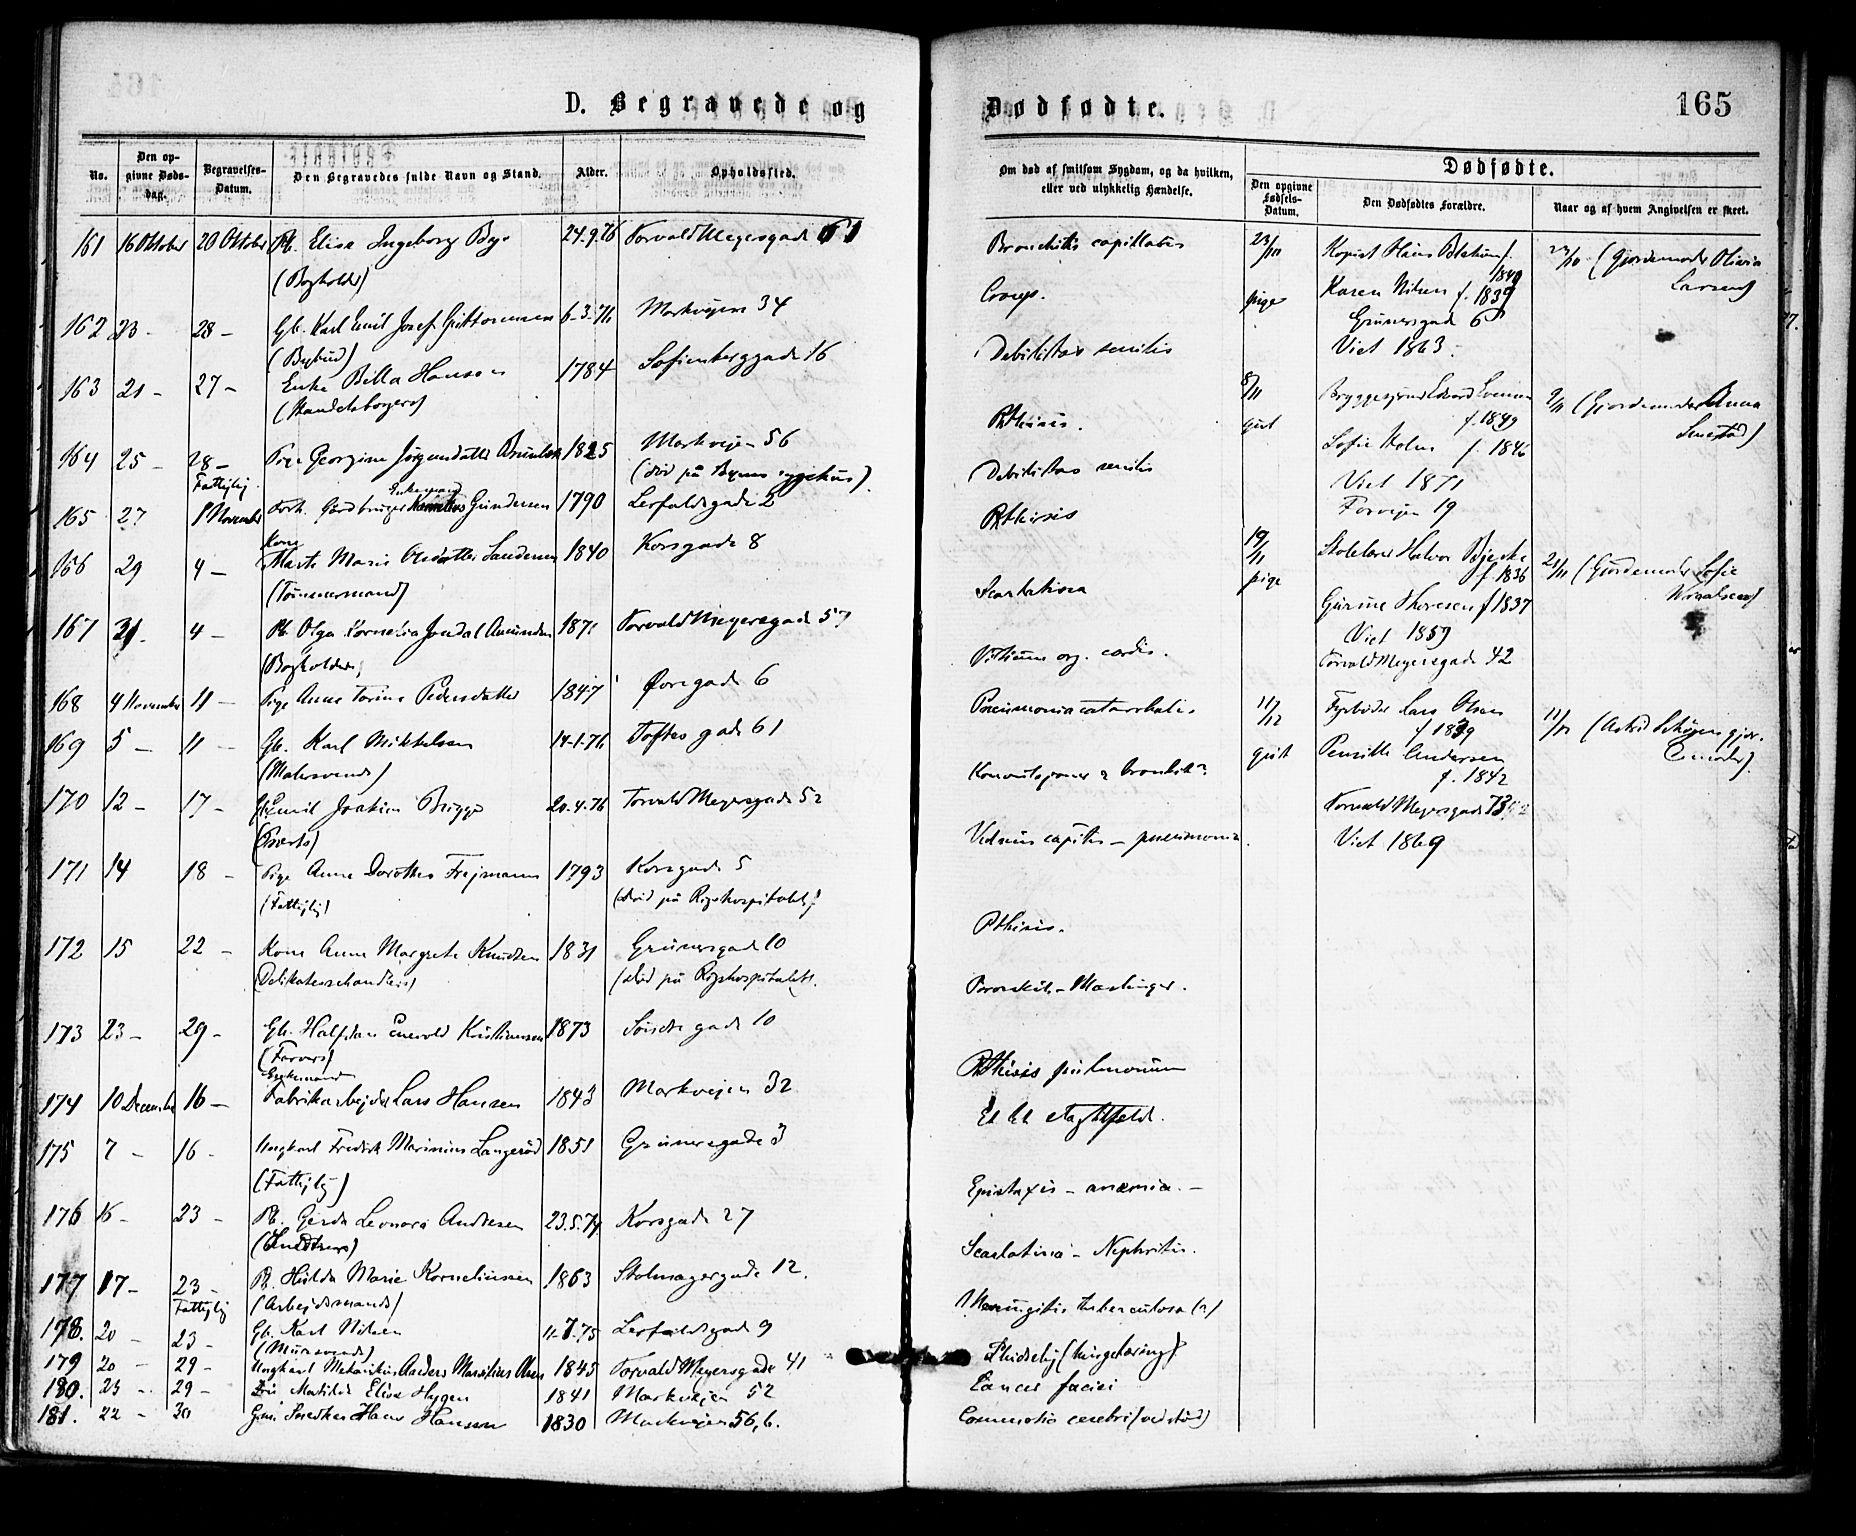 D. Begravede og
Dødfødte.
165
No.
Den opgivne Dødsdag.
Begravelses-Datum.
Den Begravedes fulde Navn og Stand.
Alder.
Opholdssted.
Om død af smitsom Sygdom, og da hvilken, eller ved ulykkelig Hændelse.
Dødfødte.
Den opgivne Fødsels-Datum.
Den Dødfødtes Forældre.
Naar og af hvem Angivelsen er skeet.
161 16 Oktober 20 Oktober Pb. Elise Ingeborg 24.9.76 Torvald Meyersgade 61
(Bogholder)
162 23 - 28 - Gb. Karl Emil Josef Guttormsen 6-3-76 Markvejen 34
(Bybud)
163 21 - 27 - Enke Hansen 1784 Sofienberggade 16
164 25 - 28 - Pige Georgine Jørgensdatter 1825 Markvejen 56
Fattiglig (død på Byens sygehus).
Enkemand
165 27 1 November Forh. Gårdbruger Gundersen 1790 Lerfaldsgade 2
Kone
166 29 4 - Marte Marie Olsdatter Sandersen 1840 Korsgade 8
(Tømmermand)
167 31. 4 - Pb. Olga Kornelia Amundsen 1871 Torvald Meyersgade 57
(Bogholders)
168 4 November 11 - Pige Anne Torine Pedersdatter 1847 Øvregade 6
169 5 - 11 - Gb. Karl Mikkelsen 14-1-76 Toftes gade 61
(Malersvends)
170 12 - 17 - Gb. Emil Joakim Brigge 20.4.76 Torvald Meyersgade 52
171 14 18 - Pige Anne Dorothea Frejmann 1793 Korsgade 5
(Fattiglig) (død på Rigshospitalet)
172 15 22 - Kone Anne Margrete Knudsen 1831 Grünersgade 10
(Delikatessehandlers) (død på Rigshospitalet).
173 23 - 29 - Gb. Halfdan Enevold Kristiansen 1873 Søndregade 10
(Farvers)
Enkemand
174 10 December 16 - Fabrikarbejder Lars Hansen 1843 Markvejen 32
175 7 - 16 - Ungkarl Fredrik Marinius Langerød 1851 Grünersgade 3
(Fattiglig)
176 16 - 23 - Pb. Gerda Leonora Andresen 23.5.74 Korsgade 27
177 17 - 23 - Pb. Hulda Marie Korneliussen 1863 Stolmagergade 12.
Fattiglig (Arbejdsmands)
178. 20 - 23 - Gb. Karl Nilsen 11-7.75 Lerfaldsgade 9
(Mursvends)
179 20 - 29 - Ungkarl Mekanikus Anders Olsen 1845 Torvald Meyersgade 41
180. 23 - 29 - Matilde Elise Hygen 1841 Markvejen 52
181. 22 - 30 Snedker Hans Hansen 1830 Markvejen 56, b.
Bronchitis capillaris
Croup.
Debilitas senilis
Phthisis.
Debilitas senilis
Phthisis
Scarlatina
Vitium org. cordis.
Pneumonia catarrhalis
Konvulsjoner & bronkit?
Vulnus capitis - pneumonia.
Phthisis.
Bronkit. - Mæslinger.
Phthisis pulmonum
Et slagtilfeld.
Epistaxis - anæmia. -
Scarlatina - Nephritis.
Meningitis tuberculosa (?)
Cancer faciei
Commotio cerebri
23/10 Kopist Hans f. 1840 23/10 (Gjordemoder Olivia Larsen)
pige Karen Nilsen f. 1839
Grünersgade 6
Viet 1863.
8/11 Edvard Evensen f. 1849 9/11 (Gjordemoder Anna
gut Sofie Holm f. 1846
Viet 1871
19
19/11 Halvor f. 1836 21/11 (Gjordemoder Sofie
pige Gurine Thoresen f 1837
Viet 1859
Torvald Meyersgade 42
11/12 Fyrbøder Lars Olsen f 1839 11/12 (Astrid gjordemoder).
gut Pernille Andersen f. 1842
Torvald Meyersgade 73
Viet 1869